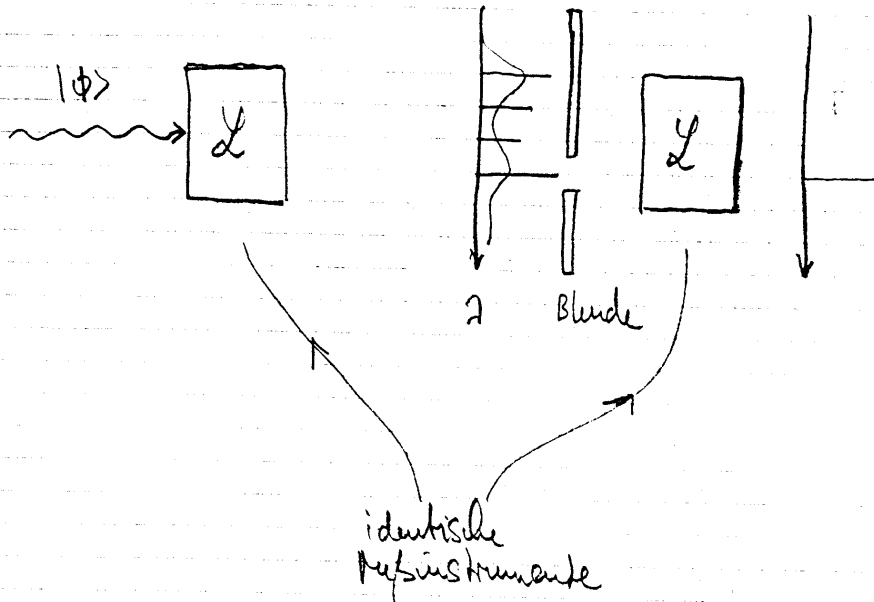 |ϕ>
ℒ
ℒ
λ
Blende
identische
Meßinstrumente